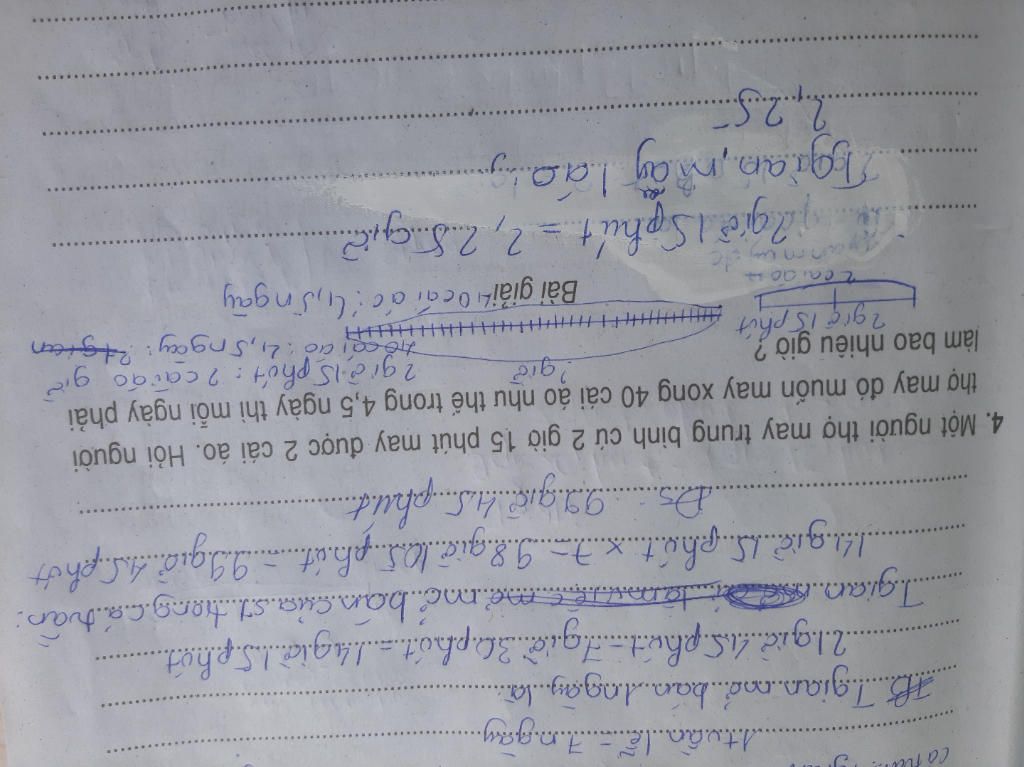 1 tuần lễ = 7 ngày
Tgian mở bán 1 ngày là
21 giờ 45 phút - 7 giờ 30 phút = 14 giờ 15 phút
Tgian mở bán của st trong cả tuần:
14 giờ 15 phút x 7 = 98 giờ 105 phút = 99 giờ 45 phút
Đs: 99 giờ 45 phút
4. Một người thợ may trung bình cứ 2 giờ 15 phút may được 2 cái áo. Hỏi người
thợ may đó muốn may xong 40 cái áo như thế trong 4,5 ngày thì mỗi ngày phải
làm bao nhiêu giờ ?
2 giờ 15 phút : 2 cái áo
? giờ
40 cái áo : 4,5 ngày : ? giờ
2 giờ 15 phút
2 cái áo
Bài giải
40 cái áo : 4,5 ngày
2 giờ 15 phút = 2,25 giờ
Tgian may 1 áo
2,25